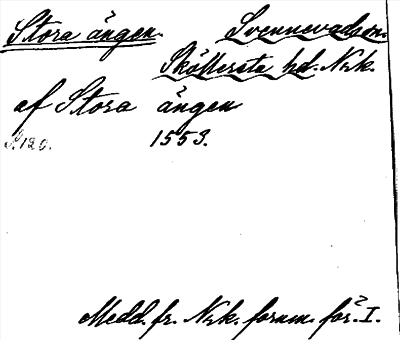 Stora ängen. Svennevadsn.
Sköllersta hd. Nrk.
af Stora ängen
S. 120. 1553.
Medd. fr. Nrk. fornm. för. I.